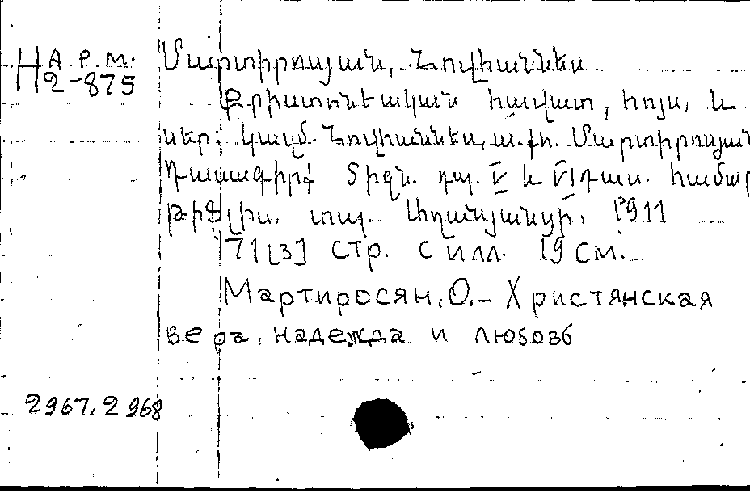 Н А.Р.М.
2-875
Մարտիրոսյան, Հովհաննես
Քրիստոնեական հավատ, հույս, և
սեր. Կազմ. Հովհաննես, ա.ք. Մարտիրոսյան
Դասագիրք Տիգն. դպ. V և VI դաս. համար
Թիֆլիս. տպ. 1911
71[3] стр. с илл. 19 см.
Мартиросян, О.- Христянская
вера, надежда и любовь
2967.2968